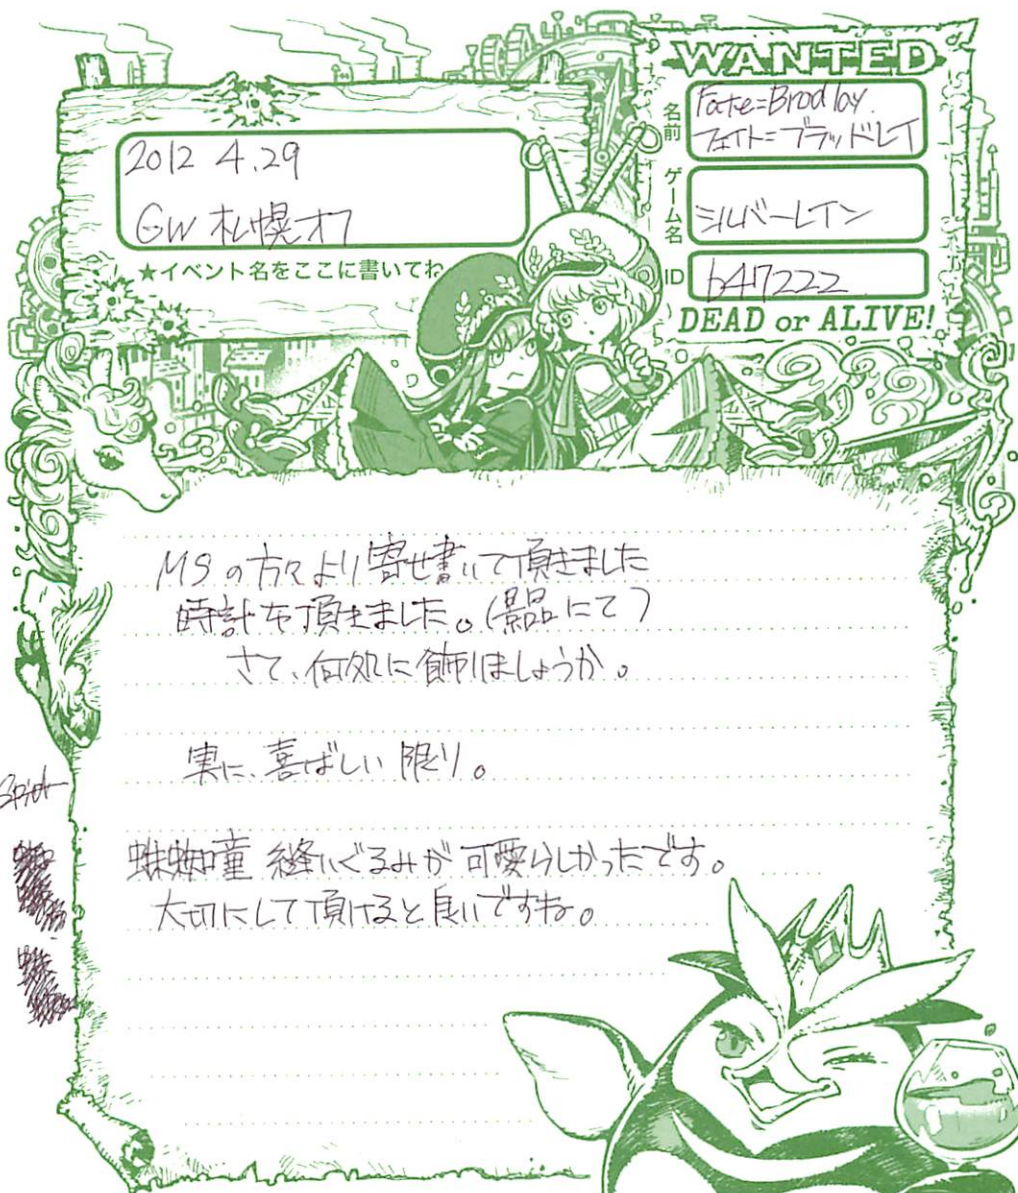 2012 4.29
GW 札幌オフ
★イベント名をここに書いてね
WANTED
名前
フェイト=ブラッドレイ
ゲーム名
シルバーレイン
ID
b47222
DEAD or ALIVE!
MSの方々より寄せ書いて頂きました
時計を頂きました。(景品にて)
さて、何処に飾りましょうか。
実に、喜ばしい限り。
蜘蛛童 縫いぐるみが可愛らしかったです。
大切にして頂けると良いですね。